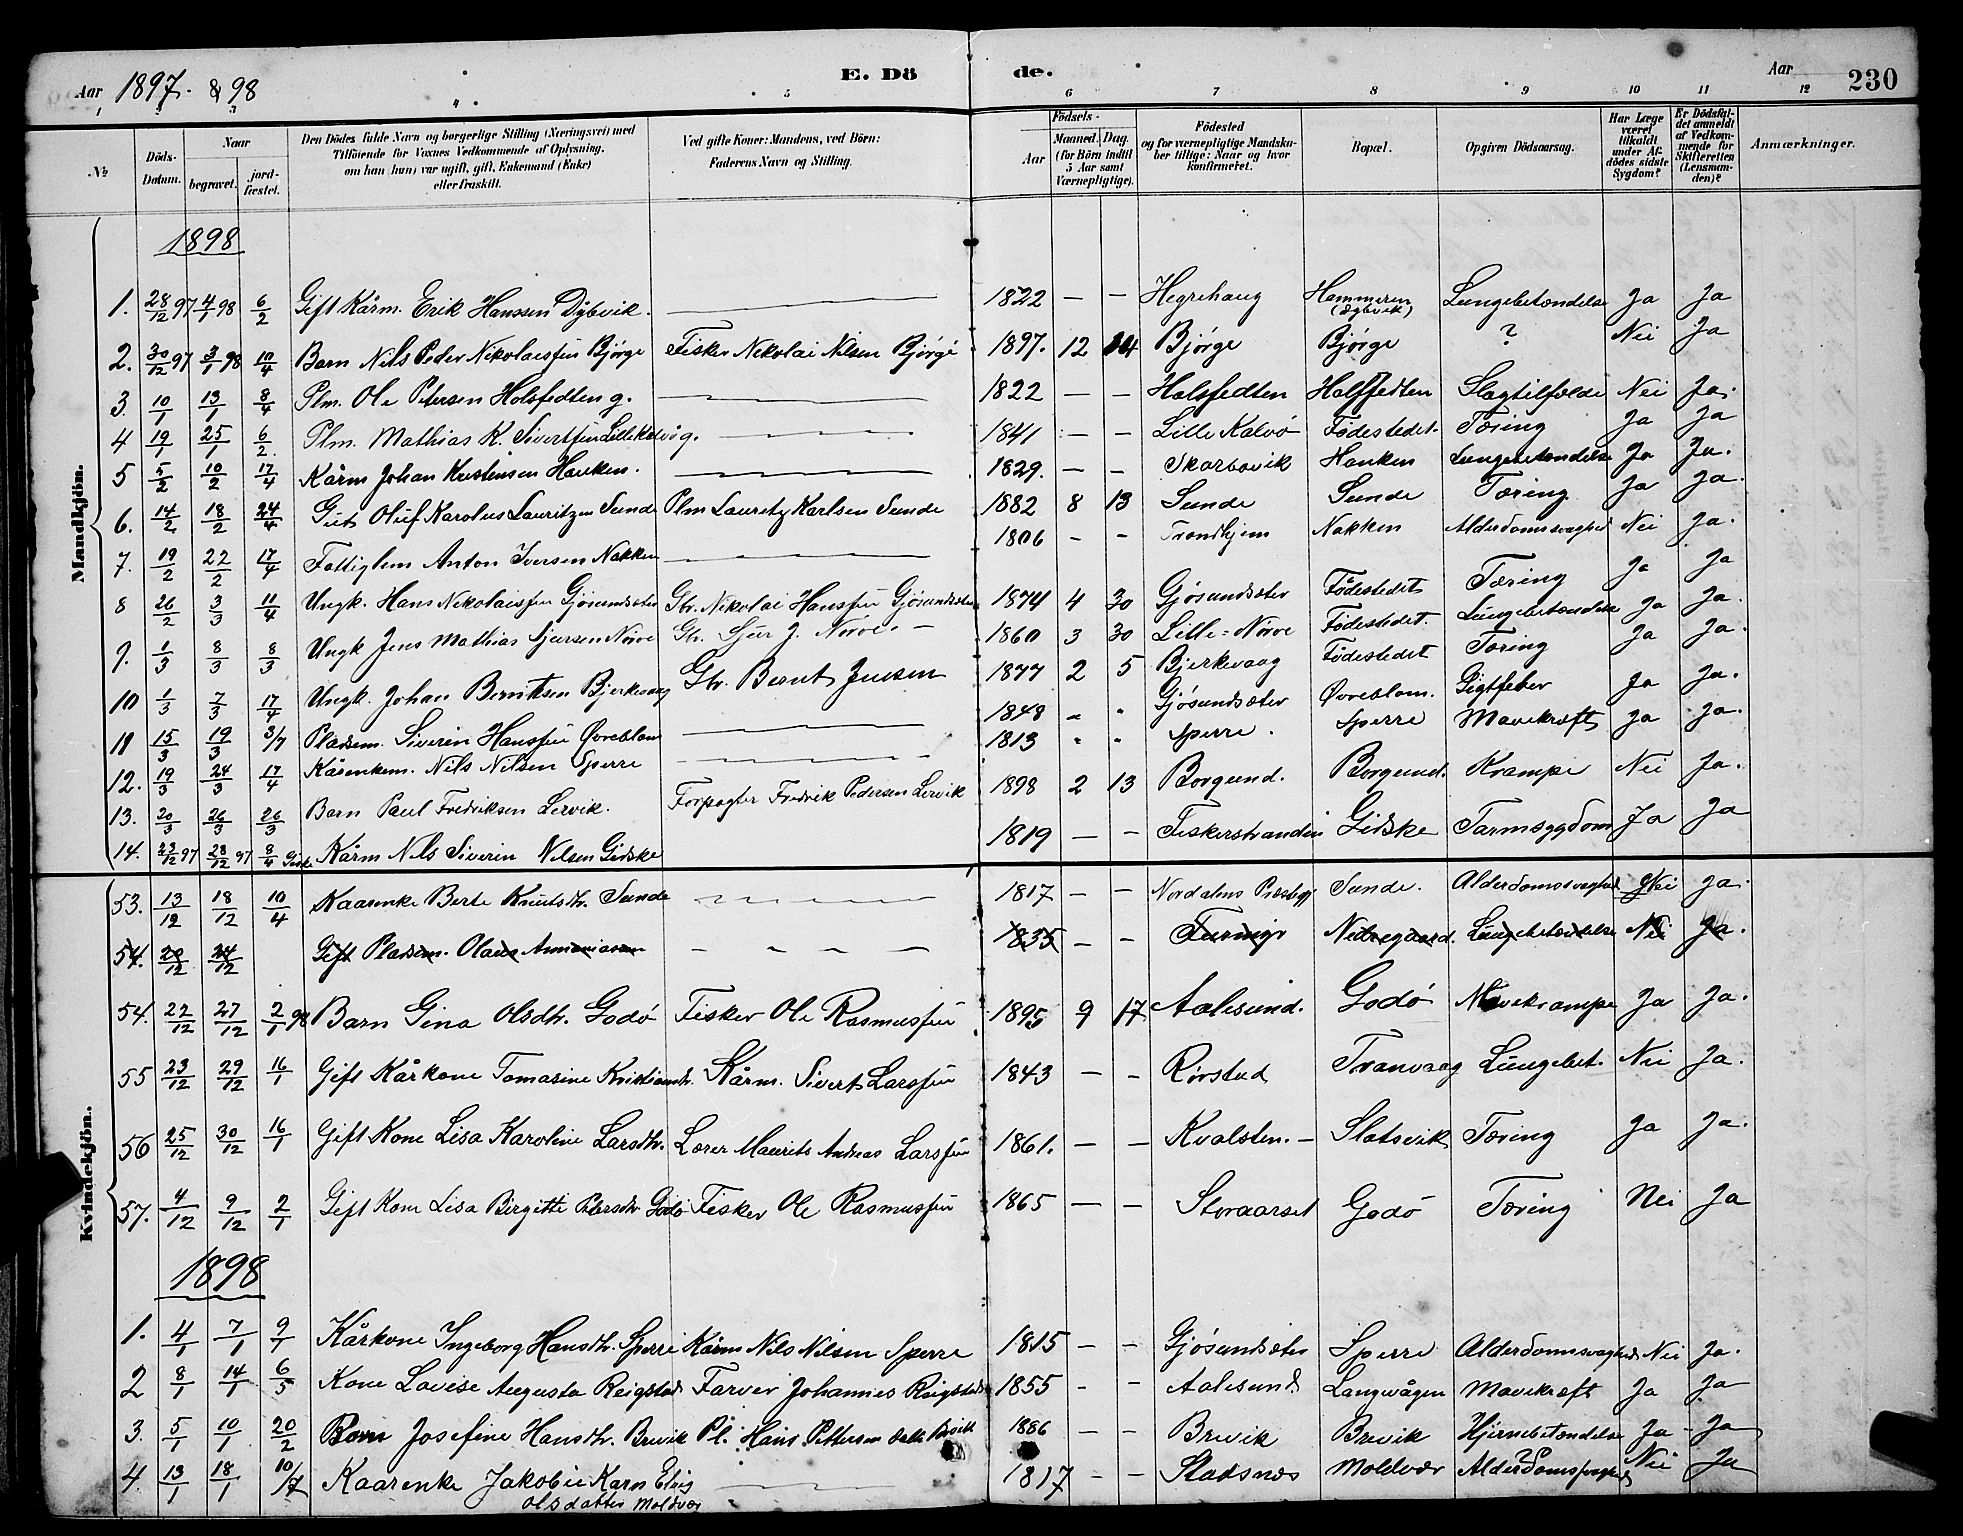 Aar 1897. & 98 E. Döde. Aar 230
1 2 3 4 5 6 7 8 9 10 11 12
№ Döds-Datum. Naar begravet. jordfæstet. Den Dödes fulde Navn og borgerlige Stilling (Næringsvei) med Tilföiende for Voxnes Vedkommende af Oplysning, om han (hun) var ugift, gift, Enkemand (Enke) eller fraskilt. Ved gifte Koner: Mandens, ved Börn: Faderens Navn og Stilling. Födsels- Aar Maaned. Dag. (for Börn indtil 5 Aar samt Værnepligtige). Födested og for værnepligtige Mandskaber tillige: Naar og hvor konfirmeret. Bopæl. Opgiven Dödsaarsag. Har Læge været tilkaldt under Afdödes sidste Sygdom? Er Dödsfaldet anmeldt af Vedkommende for Skifteretten (Lensmanden)? Anmærkninger.
Mandkjön.
1898
1. 28/12 97 4/1 98 6/2 Gift Kårm. Erik Hanssen Dybvik. 1822 — — Hegrehaug Hammeren (Dybvik) Lungebetændelse Ja Ja
2. 30/12 97 3/1 98 10/4 Barn Nils Peder Nikolaisen Bjørge Fisker Nikolai Nilsen Bjørge 1897. 12 24 Bjørge Bjørge ? Nei Ja
3. 10/1 13/1 8/4 Plm. Ole Petersen Holsfedten g. 1822 — — Holsfedten Holsfedten Slagtilfælde Nei Ja.
4 19/1 25/1 6/2. Plm. Mathias K. Sivertsen Lille Kalvø g. 1841 — — Lille Kalvø Fødestedet. Tæring Ja Ja
5 5/2 10/2 17/4 Kårm Johan Kristensen Hanken. 1829. — — Skarbøvik Hanken Lungebetændelse Ja Ja.
6. 14/2 18/2 24/4 Gut Oluf Karolus Lauritzen Sunde Plm Lauritz Karlsen Sunde 1882 8 13 Sunde Sunde Tæring Ja Ja.
7. 19/2 22/2 17/4 Fattiglem Anton Iversen Nakken 1806 - - Trondhjem Nakken Alderdomssvaghed Nei Ja.
8 26/2 3/3 11/4 Ungk. Hans Nikolaisen Gjøsundsæter Gbr. Nikolai Hanssen Gjøsundsæter 1874 4 30 Gjøsundsæter Fødestedet Tæring Ja Ja
9. 1/3 8/3 8/3 Ungk Jens Mathias Sjursen Nørve Gbr. Sjur J. Nørve. — 1860 3 30 Lille=Nørve Fødestedet. Lungebetændelse Ja Ja.
10 1/3 7/3 17/4 Ungk. Johan Berntsen Bjerkevaag Gbr. Bernt Jensen 1877 2 5 Bjerkevaag Fødestedet Tæring Ja Ja.
11 15/3 19/3 3/7 Pladsem. Siverin Hanssen Øvreblom 1848 - - Gjøsundsæter Øvreblom. Gigtfeber Ja Ja.
12. 19/3 24/3 17/4 Kårenkem. Nils Nilsen Sperre 1813 - - Sperre. Sperre Mavekræft Ja Ja.
13. 20/3 26/3 26/3 Barn Paul Fredriksen Lervik. Forpagter Fredrik Pedersen Lervik 1898 2 13 Borgund. Borgund. Krampe Nei Ja.
14. 23/12 97 28/12 97 8/4 Giske Kårm Nils Siverin Nilsen Gidske 1819 — — Fiskerstranden Gidske Tarmsygdom Ja Ja
Kvindekjön.
53. 13/12 18/12 10/4 Kaarenke Berte Knutsdtr. Sunde 1817 — — Nordalens Præstegj Sunde. Alderdomssvaghed Nei Ja.
54. 20/12 24/12 Gift Pladsem. Olaus Ananiassen 1835 — — Nedregaard. Lungebetændelse Nei Ja.
54. 22/12 27/12 2/1 98 Barn Gina Olsdtr. Godø Fisker Ole Rasmussen 1895 9 17 Aalesund. Godø Mavekrampe Ja Ja.
55 23/12 29/12 16/1 Gift Kårkone Tomasine Kristiansdtr. Kårm. Sivert Larssen 1843 — — Rørstad Tranvaag Lungebet. Nei Ja.
56 25/12 30/12 16/1 Gift Kone Lisa Karoline Larsdtr. Lærer Maurits Andreas Larssen 1861. — — Kvalsten. — Slatsvik Tæring Ja Ja.
57. 4/12 9/12 2/1 Gift Kone Lisa Birgitte Petersdtr Godø Fisker Ole Rasmussen 1865 — — Storaarset Godø Tæring Nei Ja
1898
1. 4/1 7/1 9/1 Kårkone Ingeborg Hansdtr. Sperre Kårm Nils Nilsen Sperre 1815 — — Gjøsundsæter Sperre Alderdomssvaghed Nei Ja.
2 8/1 14/1 6/5 Kone Lovise Augusta Reigstad Farver Johannes Reigstad 1855 - - Aalesund Langevågen Mavekræft Ja Ja
3. 5/1 10/1 20/2 Barn Josefine Hansdtr. Brevik Pl. Hans Pettersen Brevik 1886 — — Brevik Brevik Hjernebetændelse Ja Ja
4. 13/1 18/1 10/7 Kaarenke Jakobie Karn Elvig Olsdatter Moldvær 1817 - - Stadsnæs Moldvær Alderdomssvaghed Nei Ja